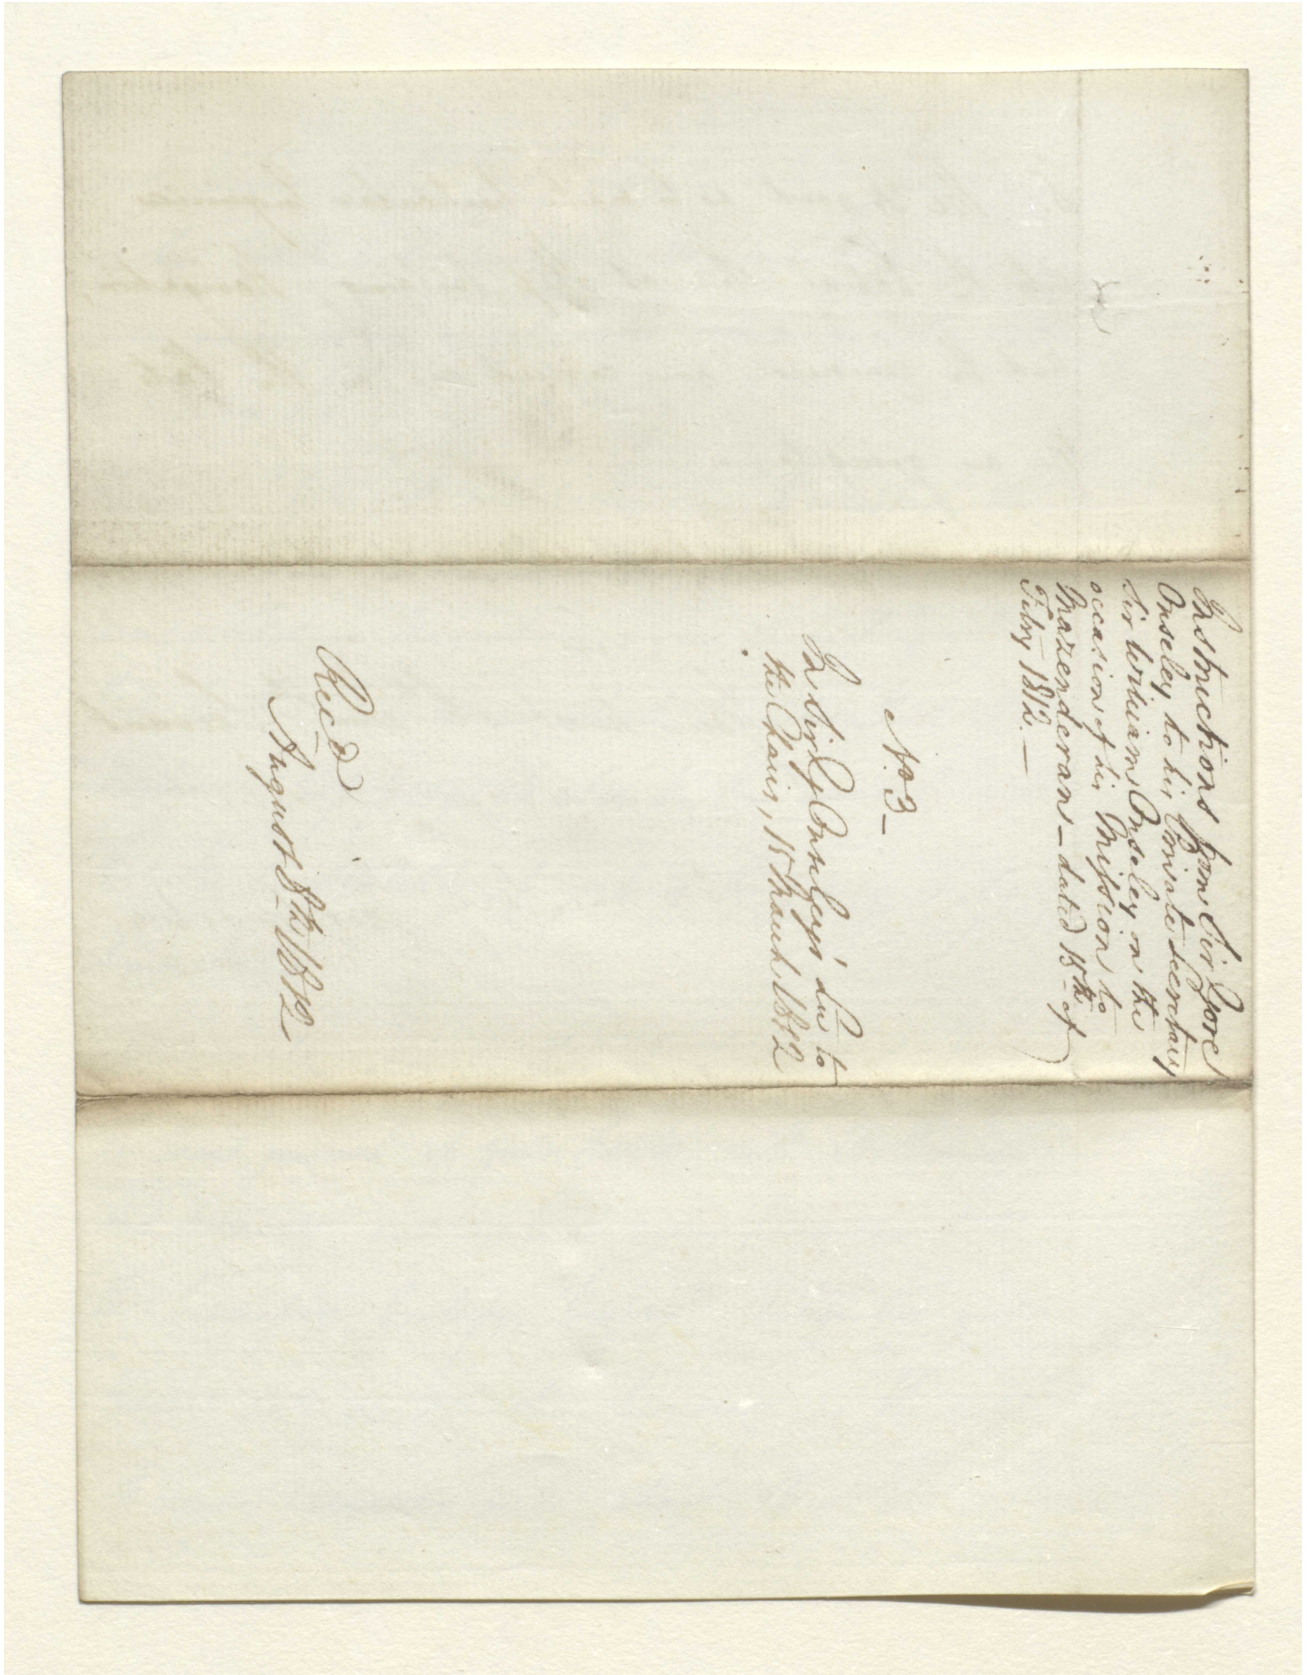 Instructions from Sir Gore
Ouseley to his Private Secretary
Sir William Ouseley on the
occasion of his Mission to
Mazenderan – dated 15th of
Feby 1812. —
No 3 –
In Sir G Ouseley's to
the Chair, 15 March 1812
Rec d
August 8th 1812